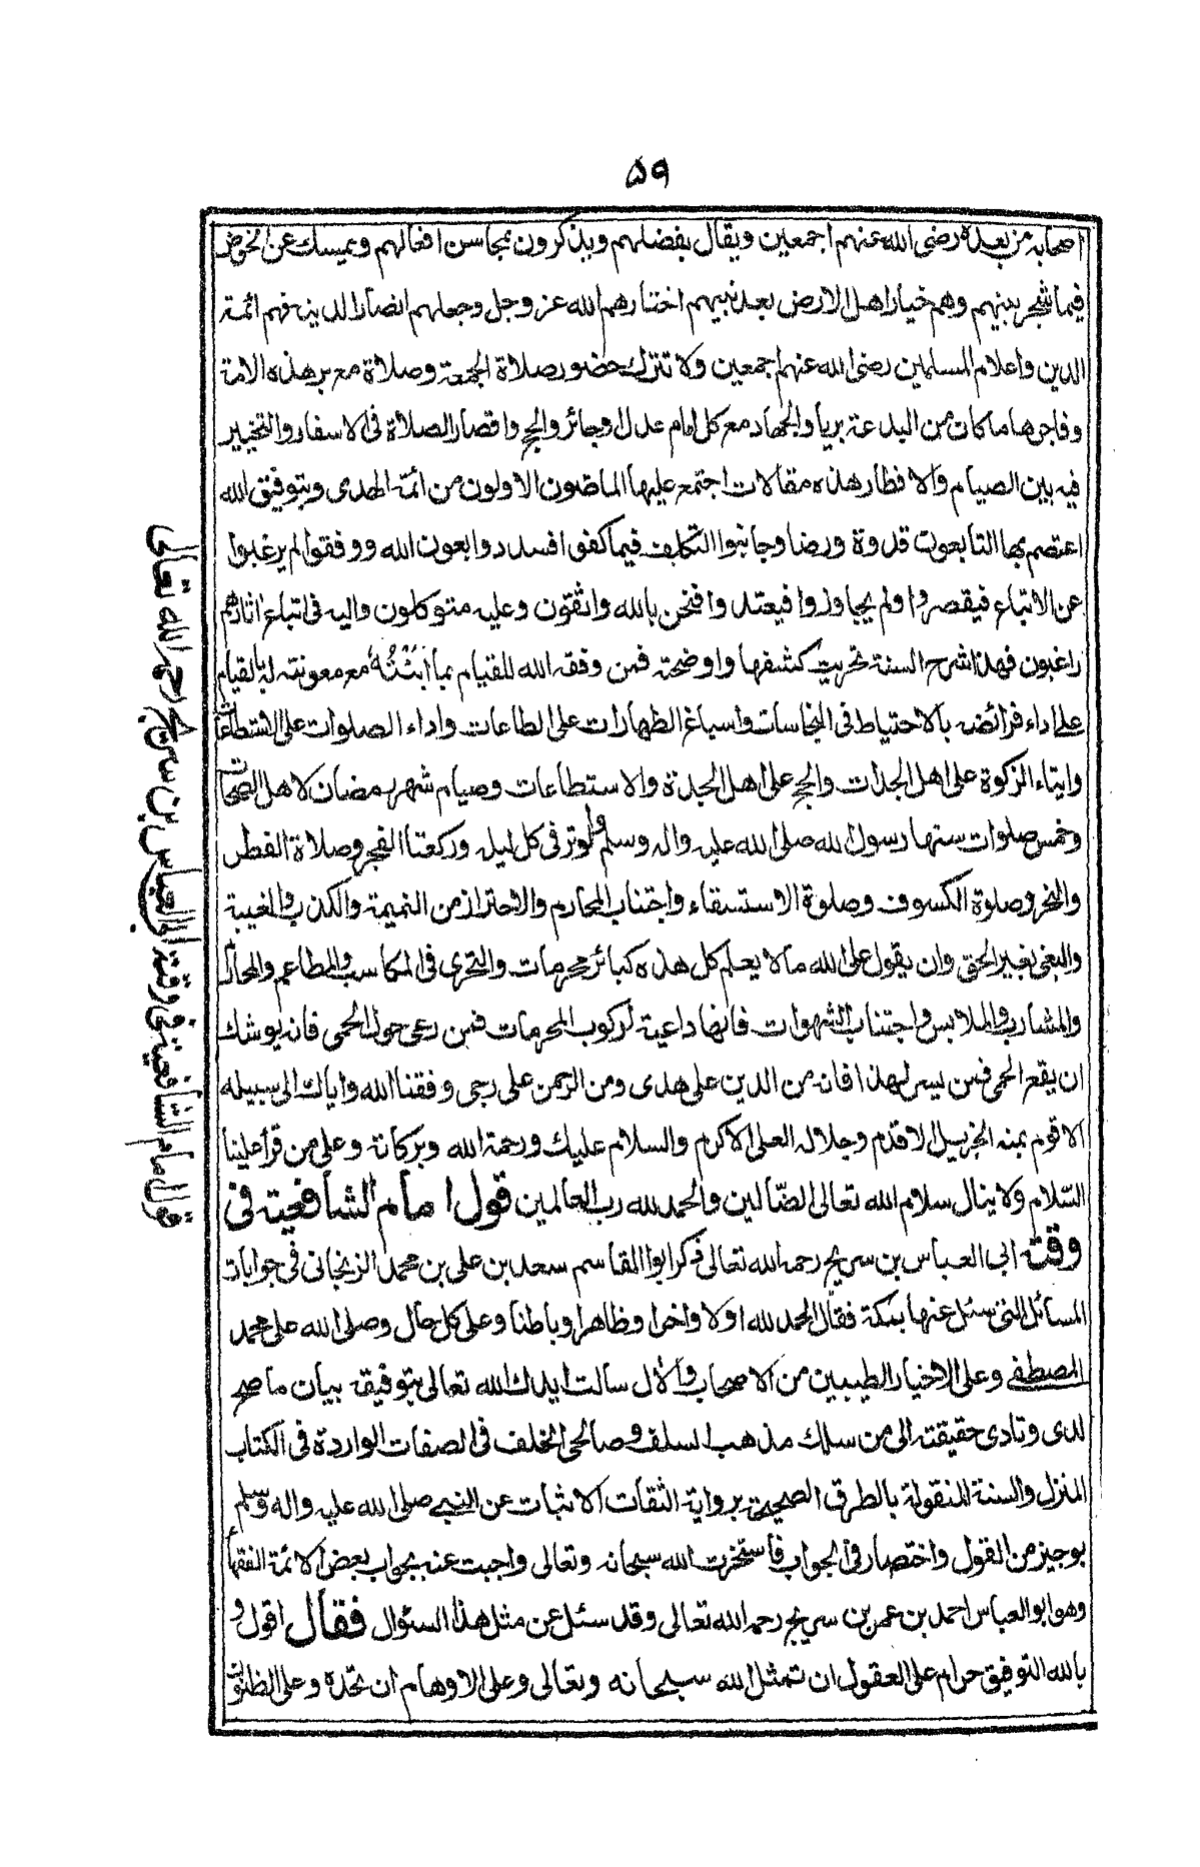 ٥٩
اصحابه من بعده رضى الله عنهم اجمعين ويقال بفضلهم ويذكرون بمحاسن افعالهم ويمسك عن الخوض
فيما شجر بينهم وهم خيار اهل الارض بعد نبيهم اختارهم الله عز وجل وجعلهم انصارا لدينه فهم ائمة
الدين واعلام المسلمين رضى الله عنهم اجمعين ولا تترك حضور صلاة الجمعة وصلاة مع بر هذه الامة
وفاجرها ما كان من البدعة بريا والجهاد مع كل امام عدل او جائر والحج واقصار الصلاة فى الاسفار والتخيير
فيه بين الصيام والافطار هذه مقالات اجتمع عليها الماضون الاولون من ائمة الهدى وبتوفيق الله
اعتصم بها التابعون قدوة ورضا وجانبوا التكلف فيما كفوا فسددوا بعون الله ووفقوا لم يرغبوا
عن الاتباع فيقصروا ولم يجاوزوا فيعتدوا فنحن بالله واثقون وعليه متوكلون واليه فى اتباع اثارهم
راغبون فهذا شرح السنة تحريت كشفها واوضحته فمن وفقه الله للقيام بما أَبَنْتُهُ مع معونته له بالقيام
على اداء فرائضه بالاحتياط فى النجاسات واسباغ الطهارات على الطاعات واداء الصلوات على الاستطاعات
وايتاء الزكوة على اهل الجدات والحج على اهل الجدة والاستطاعات وصيام شهر رمضان لاهل الصحات
وخمس صلوات سنها رسول الله صلى الله عليه واله وسلم والوتر فى كل ليلة وركعتا الفجر وصلاة الفطر
والنحر وصلوة الكسوف وصلوة الاستسقاء واجتناب المحارم والاحتراز من النميمة والكذب والغيبة
والبغى بغير الحق وان يقول على الله ما لا يعلم كل هذه كبائر محرمات والتحرى فى المكاسب والمطاعم والمحارم
والمشارب والملابس واجتناب الشهوات فانها داعية لركوب المحرمات فمن رعى حول الحمى فانه يوشك
ان يقع الحمى فمن يسر لهذا فانه من الدين على هدى ومن الرحمن على رجى وفقنا الله واياك الى سبيله
الاقوم بمنه الجزيل الاقدم وجلاله العلى الاكرم والسلام عليك ورحمة الله وبركاته وعلى من قرأ علينا
السّلام ولا ينال سلام الله تعالى الضّالين والحمد لله رب العالمين قول امام الشافعية فى
وقته ابى العباس بن سريج رحمه الله تعالى ذكر ابو القاسم سعد بن على بن محمد الزنجانى فى جوابات
المسائل التى سئل عنها بمكة فقال الحمد لله اولا واخرا وظاهرا وباطنا وعلى كل حال وصلى الله على محمد
المصطفى وعلى الاخيار الطيبين من الاصحاب والآل سالت ايدك الله تعالى بتوفيقه بيان ما صح
لدى وتادى حقيقته الى من سلك مذهب السلف وصالحى الخلف فى الصفات الواردة فى الكتاب
المنزل والسنة المنقولة بالطرق الصحيحة برواية الثقات الاثبات عن النبى صلى الله عليه واله وسلم
بوجيز من القول واختصار فى الجواب فاستخرت الله سبحانه وتعالى واجبت عنه بجواب بعض الائمة الفقهاء
وهو ابو العباس احمد بن عمر بن سريج رحمه الله تعالى وقد سئل عن مثل هذا السئوال فقال اقول و
بالله التوفيق حرام على العقول ان تمثل الله سبحانه وتعالى وعلى الاوهام ان تحده وعلى الظنون
قول امام الشافعية فى وقته ابى العباس بن سريج رحمه الله تعالى